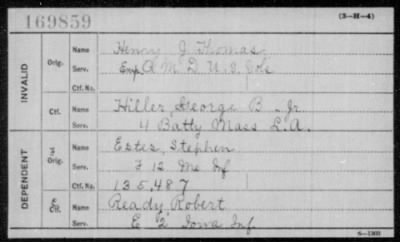 169859
(3-H-4)
INVALID
Orig.
Name Henry J Thomas
Serv. A M D U.S. Vols
Ctf. No.
Ctf. Name Hiller, George B. Jr
Serv. 4 Batty Mass L.A.
DEPENDENT
Orig. Name Estes, Stephen
Serv. F 12 Me Inf
Ctf. No. 135,487
Ctf. Name Ready, Robert
Serv. E 2 Iowa Inf